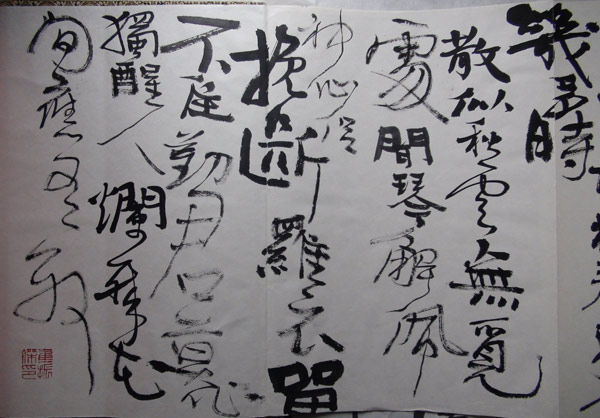 幾多時
散似秋雲無覓
處聞琴解佩
神仙侶
挽斷羅衣留
不住勸君莫作
獨醒人爛醉花
間應有數